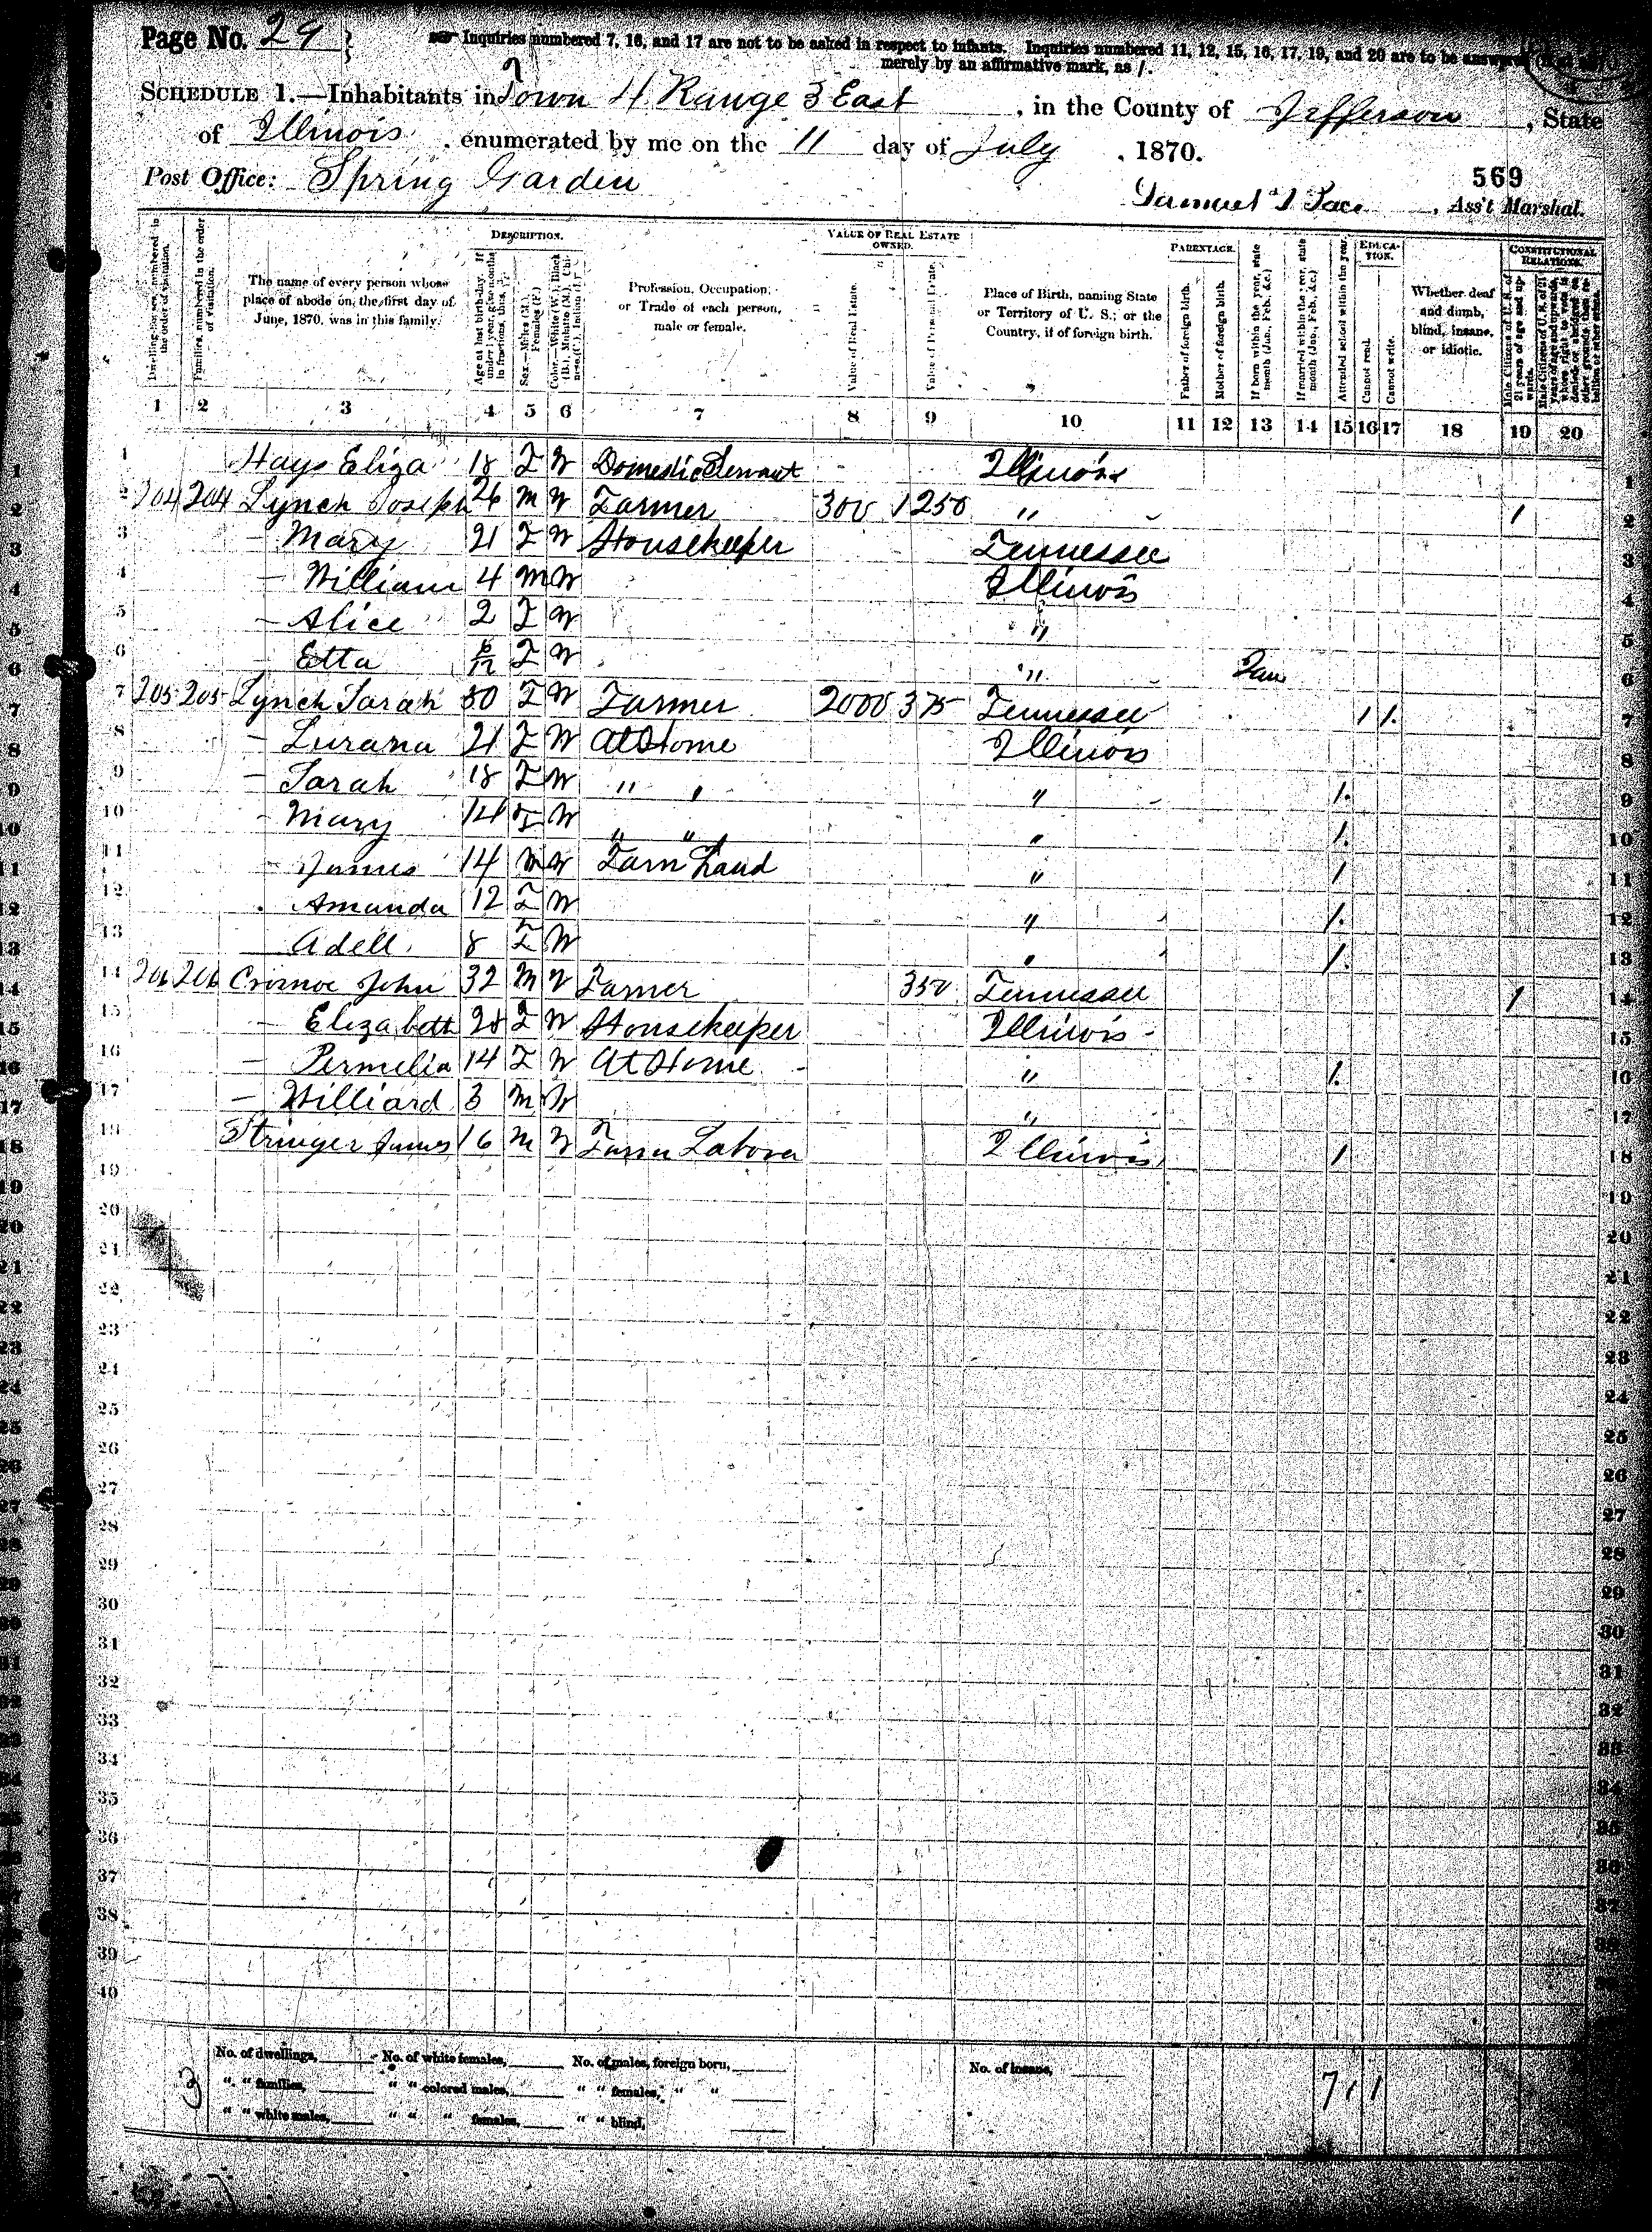 Page No. 29
Inquiries numbered 7, 16, and 17 are not to be asked in respect to infants. Inquiries numbered 11, 12, 15, 16, 17, 19, and 20 are to be answered
merely by an affirmative mark, as /.
SCHEDULE 1.—Inhabitants in Town 4 Range 3 East, in the County of Jefferson, State
of Illinois, enumerated by me on the 11 day of July, 1870.
569
Post Office: Spring Garden
Samuel T Pace, Ass't Marshal.
Dwelling-houses, numbered in the order of visitation.
Families, numbered in the order of visitation.
The name of every person whose place of abode on the first day of June, 1870, was in this family.
DESCRIPTION.
Age at last birth-day. If under 1 year, give months in fractions, thus, 3/12.
Sex.—Males (M.), Females (F.)
Color.—White (W.), Black (B.), Mulatto (M.), Chinese, (C.), Indian (I.)
Profession, Occupation, or Trade of each person, male or female.
VALUE OF REAL ESTATE OWNED.
Value of Real Estate.
Value of Personal Estate.
Place of Birth, naming State or Territory of U. S.; or the Country, if of foreign birth.
PARENTAGE.
Father of foreign birth.
Mother of foreign birth.
If born within the year, state month (Jan., Feb., &c.)
If married within the year, state month (Jan., Feb., &c.)
Attended school within the year.
EDUCATION.
Cannot read.
Cannot write.
Whether deaf and dumb, blind, insane, or idiotic.
CONSTITUTIONAL RELATIONS.
Male Citizens of U. S. of 21 years of age and upwards.
1 2 3 4 5 6 7 8 9 10 11 12 13 14 15 16 17 18 19 20
1 Hays Eliza 18 F W Domestic Servant Illinois 1
2 204 204 Lynch Joseph 26 M W Farmer 300 1250 " 1 2
3 — Mary 21 F W Housekeeper Tennessee 3
4 — William 4 M W Illinois 4
5 — Alice 2 F W " 5
6 — Etta F W " Jan 6
7 205 205 Lynch Sarah 50 F W Farmer 2000 375 Tennessee 1 1 7
8 — Lurana 21 F W At Home Illinois 8
9 — Sarah 18 F W " " " 1 9
10 — Mary 14 F W " " " 1 10
11 — James 14 M W Farm Hand " 1 11
12 — Amanda 12 F W " 1 12
13 — Adell 8 F W " 1 13
14 206 206 John 32 M W Farmer 350 Tennessee 1 14
15 — Elizabeth 28 F W Housekeeper Illinois 15
16 — Permelia 14 F W At Home " 1 16
17 — Williard 3 M W " 17
18 Stringer James 16 M W Farm Labora Illinois 1 18
19 19
20 20
21 21
22 22
23 23
24 24
25 25
26 26
27 27
28 28
29 29
30 30
31 31
32 32
33 33
34 34
35 35
36 36
37 37
38 38
39 39
40
No. of dwellings, No. of white females, No. of males, foreign born, No. of insane,
3 " " families, " " colored males, " " females, " " 7 1 1
" " white males, " " " females, " " blind,